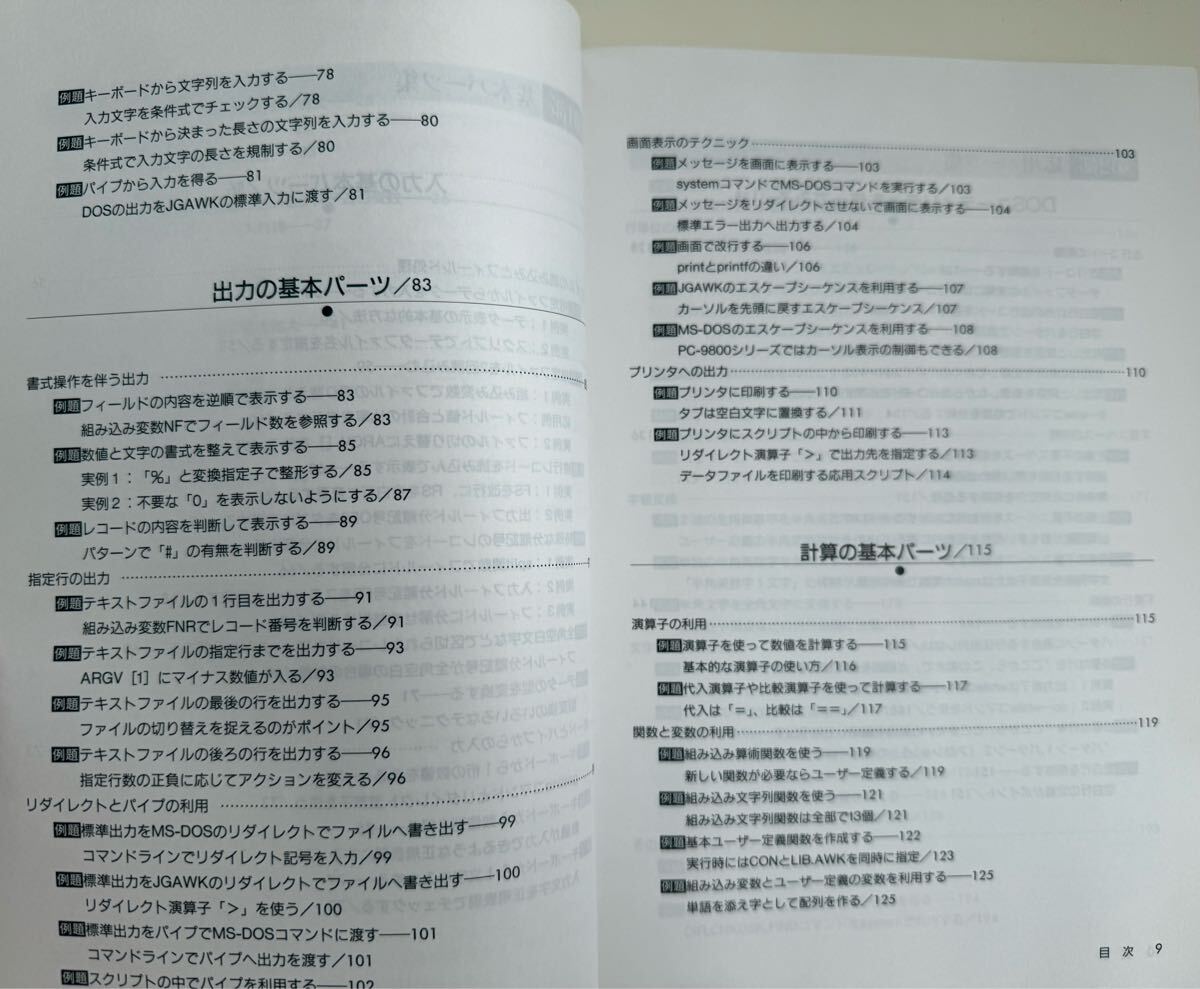 例題キーボードから文字列を入力する——78
入力文字を条件式でチェックする／78
例題キーボードから決まった長さの文字列を入力する——80
条件式で入力文字の長さを規制する／80
例題パイプから入力を得る——81
DOSの出力をJGAWKの標準入力に渡す／81
出力の基本パーツ／83
書式操作を伴う出力
例題フィールドの内容を逆順で表示する——83
組み込み変数NFでフィールド数を参照する／83
例題数値と文字の書式を整えて表示する——85
実例1：「%」と変換指定子で整形する／85
実例2：不要な「0」を表示しないようにする／87
例題レコードの内容を判断して表示する——89
パターンで「#」の有無を判断する／89
指定行の出力
例題テキストファイルの1行目を出力する——91
組み込み変数FNRでレコード番号を判断する／91
例題テキストファイルの指定行までを出力する——93
ARGV［1］にマイナス数値が入る／93
例題テキストファイルの最後の行を出力する——95
ファイルの切り替えを捉えるのがポイント／95
例題テキストファイルの後ろの行を出力する——96
指定行数の正負に応じてアクションを変える／96
リダイレクトとパイプの利用
例題標準出力をMS-DOSのリダイレクトでファイルへ書き出す——99
コマンドラインでリダイレクト記号を入力／99
例題標準出力をJGAWKのリダイレクトでファイルへ書き出す——100
リダイレクト演算子「>」を使う／100
例題標準出力をパイプでMS-DOSコマンドに渡す——101
コマンドラインでパイプへ出力を渡す／101
例題スクリプトの中でパイプを利用する——102
画面表示のテクニック 103
例題メッセージを画面に表示する——103
systemコマンドでMS-DOSコマンドを実行する／103
例題メッセージをリダイレクトさせないで画面に表示する——104
標準エラー出力へ出力する／104
例題画面で改行する——106
printとprintfの違い／106
例題JGAWKのエスケープシーケンスを利用する——107
カーソルを先頭に戻すエスケープシーケンス／107
例題MS-DOSのエスケープシーケンスを利用する——108
PC-9800シリーズではカーソル表示の制御もできる／108
プリンタへの出力 110
例題プリンタに印刷する——110
タブは空白文字に置換する／111
例題プリンタにスクリプトの中から印刷する——113
リダイレクト演算子「>」で出力先を指定する／113
データファイルを印刷する応用スクリプト／114
計算の基本パーツ／115
演算子の利用 115
例題演算子を使って数値を計算する——115
基本的な演算子の使い方／116
例題代入演算子や比較演算子を使って計算する——117
代入は「＝」、比較は「＝＝」／117
関数と変数の利用 119
例題組み込み算術関数を使う——119
新しい関数が必要ならユーザー定義する／119
例題組み込み文字列関数を使う——121
組み込み文字列関数は全部で13個／121
例題基本ユーザー定義関数を作成する——122
実行時にはCONとLIB.AWKを同時に指定／123
例題組み込み変数とユーザー定義の変数を利用する——125
単語を添え字として配列を作る／125
目　次　9